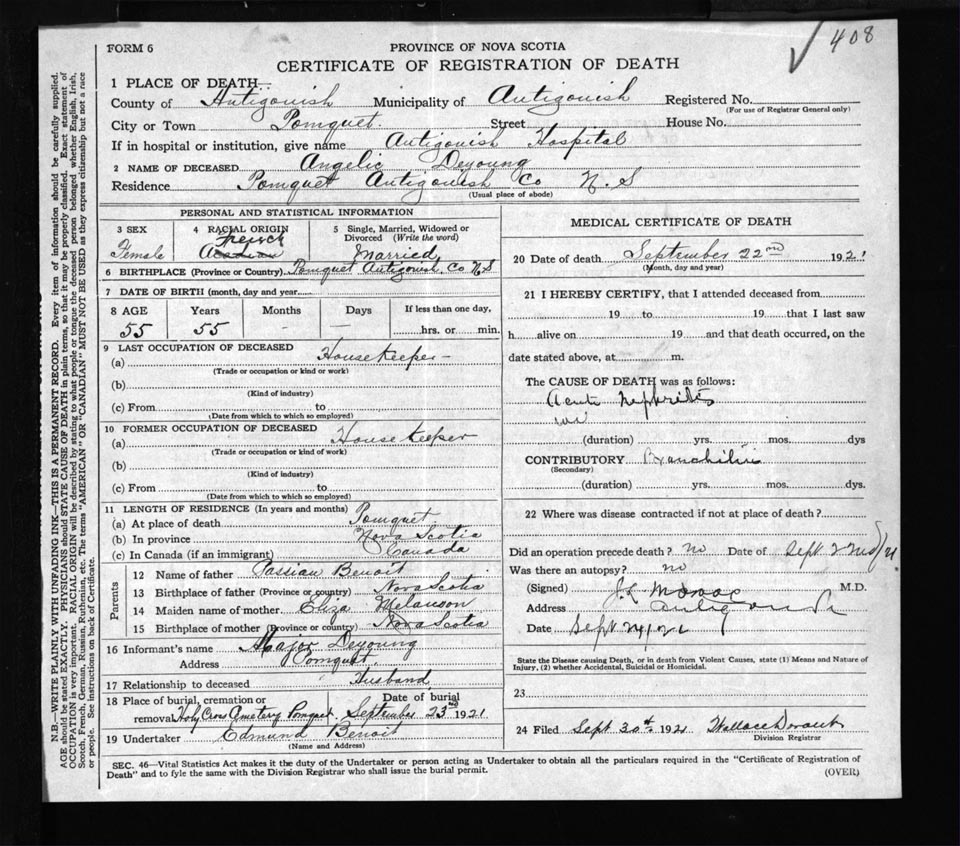 408
FORM 6
PROVINCE OF NOVA SCOTIA
CERTIFICATE OF REGISTRATION OF DEATH
1 PLACE OF DEATH—
County of Antigonish Municipality of Antigonish Registered No.
(For use of Registrar General only)
City or Town Pomquet Street House No.
If in hospital or institution, give name Antigonish Hospital
2 NAME OF DECEASED Angelic Deyoung
Residence Pomquet Antigonish Co N.S
(Usual place of abode)
PERSONAL AND STATISTICAL INFORMATION
3 SEX 4 RACIAL ORIGIN 5 Single, Married, Widowed or Divorced (Write the word)
Female French Acadian Married
6 BIRTHPLACE (Province or Country) Pomquet Antigonish Co N S
7 DATE OF BIRTH (month, day and year)
8 AGE Years Months Days If less than one day,
55 55 – – hrs. or min.
9 LAST OCCUPATION OF DECEASED
(a) Housekeeper
(Trade or occupation or kind or work)
(b)
(Kind of industry)
(c) From to
(Date from which to which so employed)
10 FORMER OCCUPATION OF DECEASED
(a) Housekeeper
(Trade or occupation or kind of work)
(b)
(Kind of industry)
(c) From to
(Date from which to which so employed)
11 LENGTH OF RESIDENCE (In years and months)
(a) At place of death Pomquet
(b) In province Nova Scotia
(c) In Canada (if an immigrant) Canada
Parents
12 Name of father Benoit
13 Birthplace of father (Province or country) Nova Scotia
14 Maiden name of mother Eliza Melanson
15 Birthplace of mother (Province or country) Nova Scotia
16 Informant's name Major Deyoung
Address Pomquet
17 Relationship to deceased Husband
18 Place of burial, cremation or removal Holy Cross Cemetery Pomquet Date of burial September 23rd 1921
19 Undertaker Edmund Benoit
(Name and Address)
MEDICAL CERTIFICATE OF DEATH
20 Date of death September 22nd 1921
(Month, day and year)
21 I HEREBY CERTIFY, that I attended deceased from
19 to 19 that I last saw
h alive on 19 and that death occurred, on the
date stated above, at m.
The CAUSE OF DEATH was as follows:
Acute Nephritis
(duration) yrs. mos. dys
CONTRIBUTORY Bronchitis
(Secondary)
(duration) yrs. mos. dys.
22 Where was disease contracted if not at place of death?
Did an operation precede death? no Date of Sept 22nd/21
Was there an autopsy? no
(Signed) M.D.
Address Antigonish
Date Sept 24/21
State the Disease causing Death, or in death from Violent Causes, state (1) Means and Nature of
Injury, (2) whether Accidental, Suicidal or Homicidal.
23
24 Filed Sept 30th 1921 Wallace
Division Registrar
SEC. 46—Vital Statistics Act makes it the duty of the Undertaker or person acting as Undertaker to obtain all the particulars required in the "Certificate of Registration of
Death" and to fyle the same with the Division Registrar who shall issue the burial permit.
(OVER)
N.B.—WRITE PLAINLY WITH UNFADING INK—THIS IS A PERMANENT RECORD. Every item of information should be carefully supplied.
AGE should be stated EXACTLY. PHYSICIANS should STATE CAUSE OF DEATH in plain terms, so that it may be properly classified. Exact statement of
OCCUPATION is very important. RACIAL ORIGIN will be described by stating to what people or tongue the deceased person belonged, whether English, Irish,
Scotch, French, German, Russian, Ruthenian, etc. The terms "AMERICAN" OR "CANADIAN" MUST NOT BE USED as they express citizenship but not a race
or people. See instructions on back of Certificate.